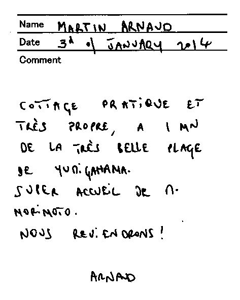 Name MARTIN ARNAUD
Date 3d of JANUARY 2014
Comment
COTTAGE PRATIQUE ET
TRÈS PROPRE, A 1 MN
DE LA TRÈS BELLE PLAGE
DE YURIGAHAMA.
SUPER ACCUEIL DE M.
MORIMOTO.
NOUS REVIENDRONS!
ARNAUD